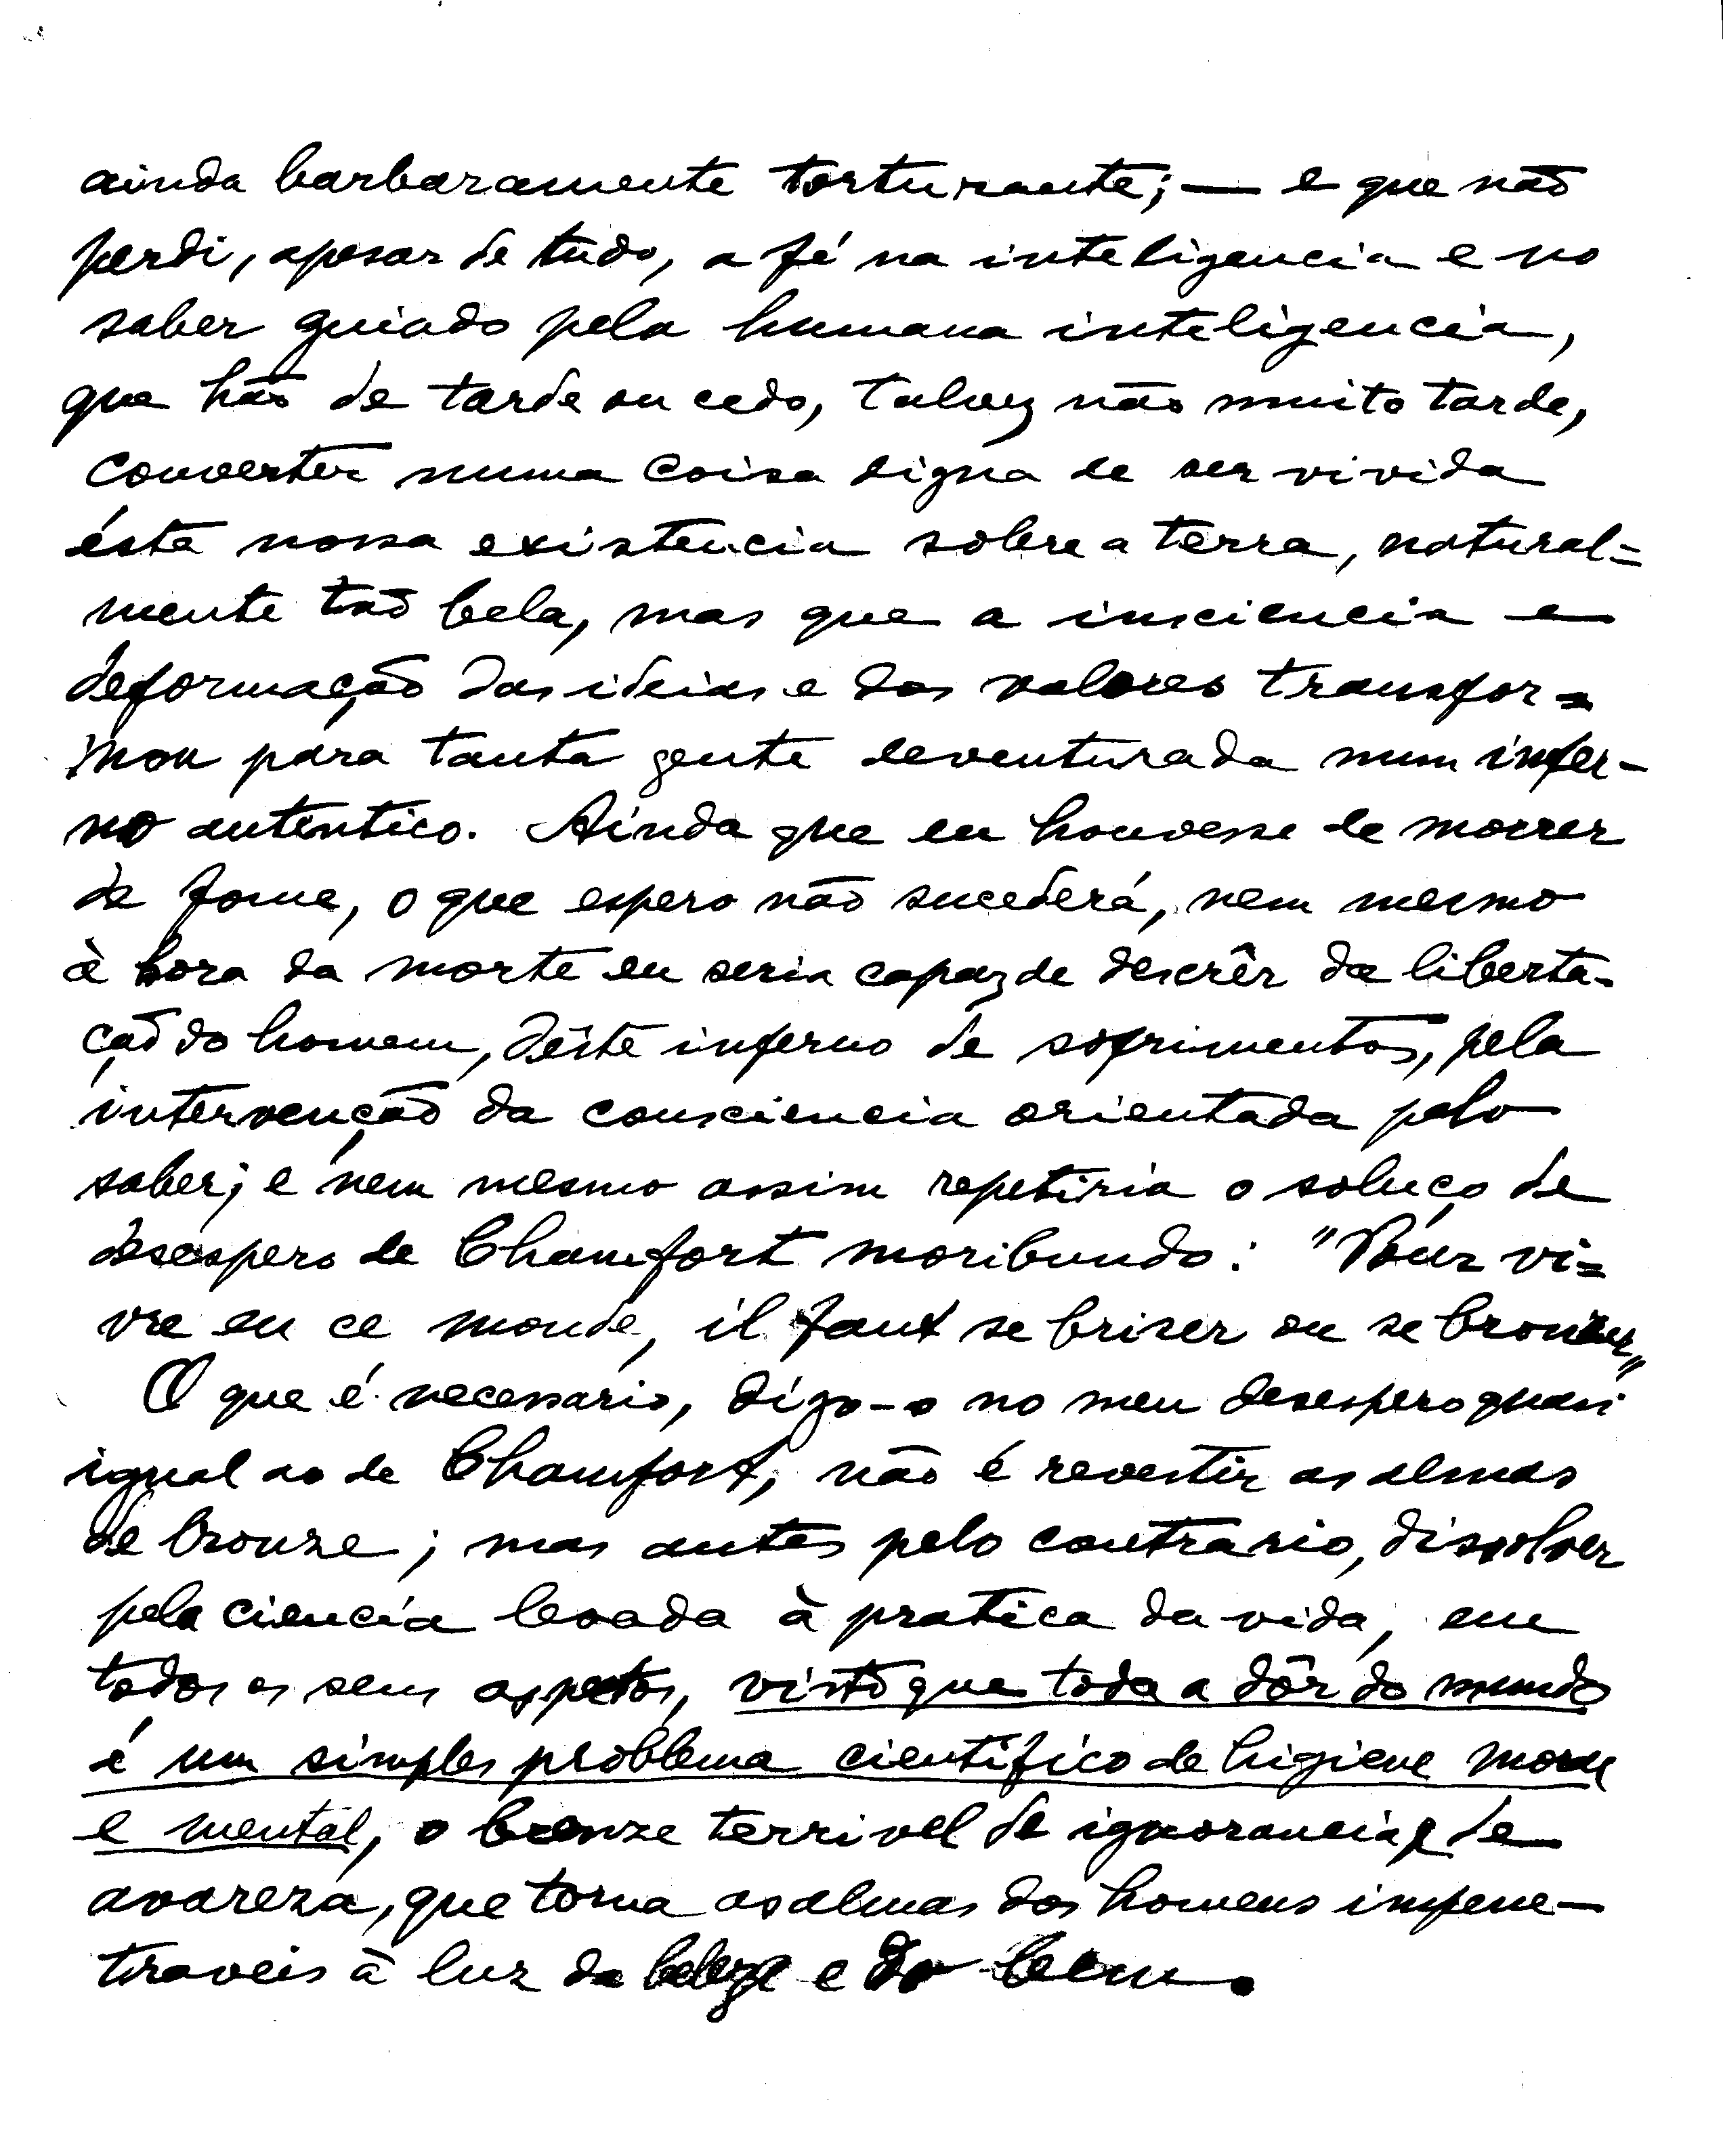 ainda barbaramente torturante; — e que não
perdi, apesar de tudo, a fé na inteligencia e no
saber guiado pela humana inteligencia,
que hão de tarde ou cedo, talvez não muito tarde,
converter numa coisa digna de ser vivida
ésta nossa existencia sobre a terra, natural=
mente tão bela, mas que a insciencia e
deformação das ideias e dos valores transfor=
mou para tanta gente deventurada num infer-
no autentico. Ainda que eu houvesse de morrer
de fome, o que espero não sucederá, nem mesmo
à hora da morte eu seria capaz de descrêr da liberta-
ção do homem, dêste inferno de sofrimentos, pela
intervenção da consciencia orientada pelo
saber; e nem mesmo assim repetiria o soluço de
desespero de Chamfort moribundo: "Pour vi=
vre en ce monde, il faut se briser ou se bronzer"
O que é necessario, digo-o no meu desespero quasi
igual ao de Chamfort, não é revestir as almas
de bronze; mas antes pelo contrario, dissolver
pela ciencia levada à pratica da vida, em
todos os seus aspectos, visto que toda a dôr do mundo
é um simples problema cientifico de higiene moral
e mental, o bronze terrivel de ignorancia e de
avareza, que torna as almas dos homens impene-
traveis à luz da beleza e do bem.